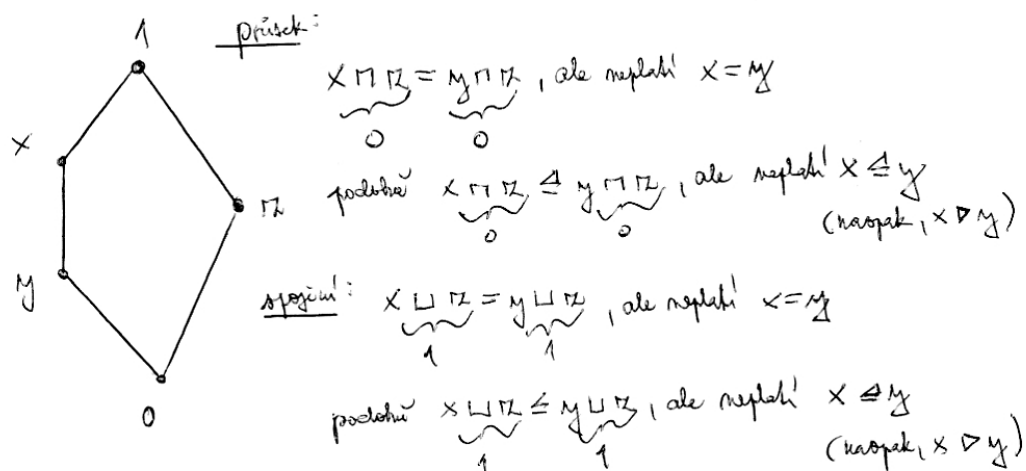 1
průsek:
x ⊓ z = y ⊓ z, ale neplatí x = y
0 0
x
podobně x ⊓ z ⊴ y ⊓ z, ale neplatí x ⊴ y
0 0
z
(naopak, x ▷ y)
y
spojení: x ⊔ z = y ⊔ z, ale neplatí x = y
1 1
0
podobně x ⊔ z ≤ y ⊔ z, ale neplatí x ⊴ y
1 1
(naopak, x ▷ y)